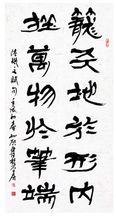 籠天地於形内
挫萬物於筆端
陸機文賦句